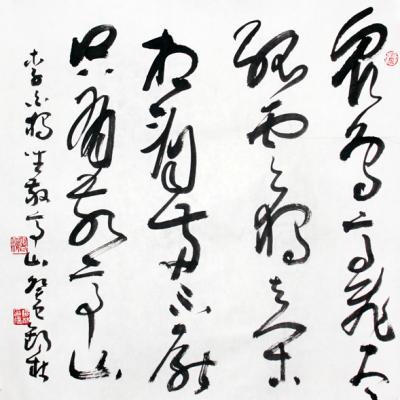 眾鳥高飛盡
孤雲獨去閑
相看兩不厭
只有敬亭山
李白獨坐敬亭山 癸巳